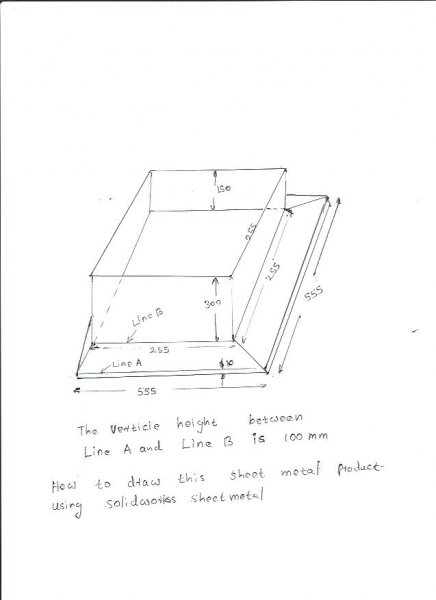 150
255
255
300
555
Line B
255
Line A
10
555
The Verticle height between
Line A and Line B is 100 mm
How to draw this sheet metal product
using solidworks sheetmetal